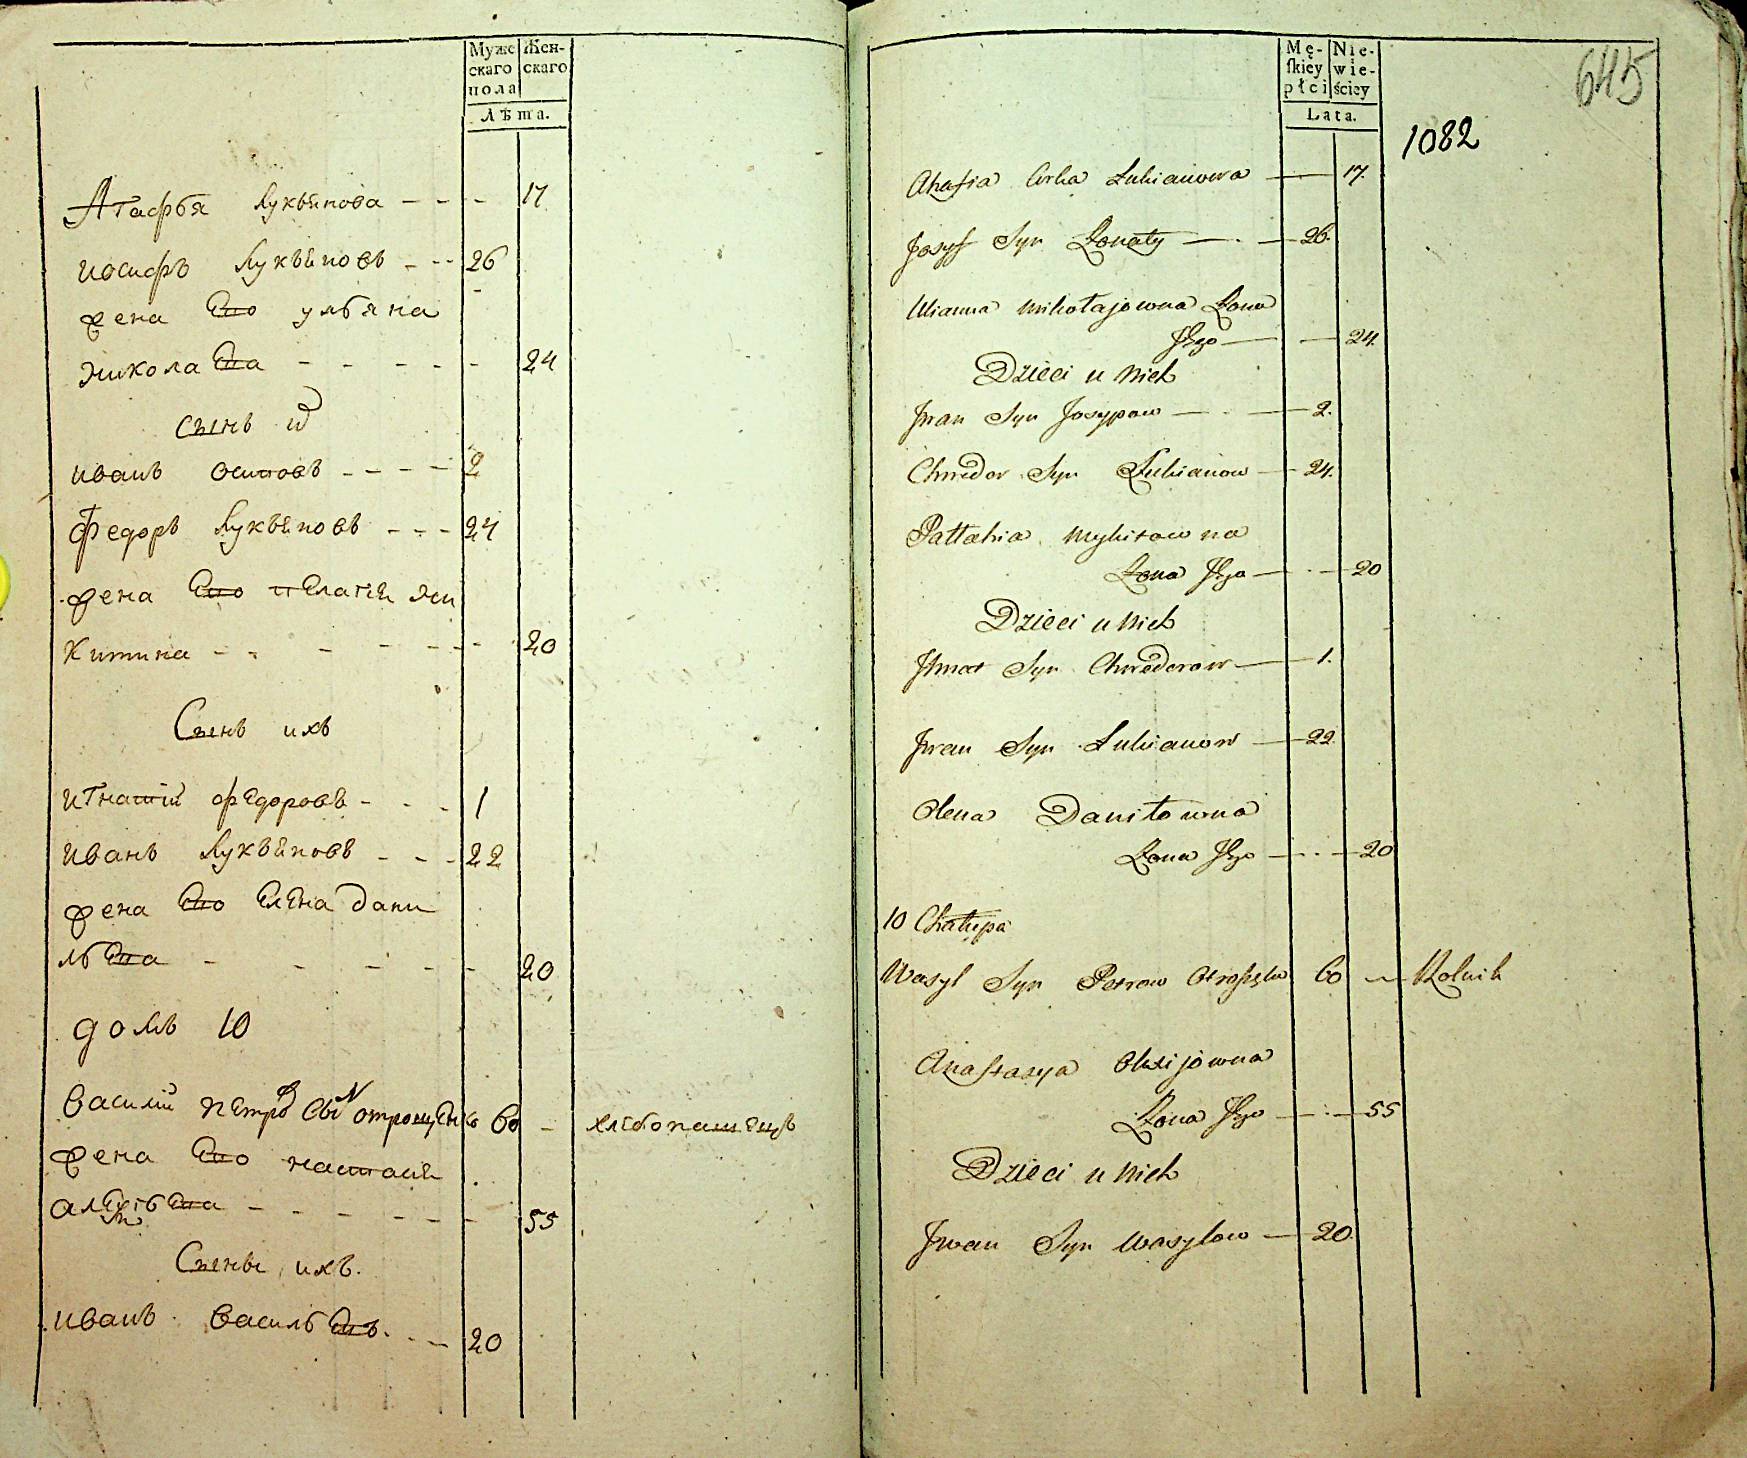 Муже Жен-
скаго скаго
пола
Лѣта.
Агафья Лукьянова - - - 17
Иосифъ Лукьяновъ - - - 26
жена Его ульяна
николаева - - - - - 24
Сынъ их
иванъ осиповъ - - - - 2
Федоръ Лукьяновъ - - - 24
жена Его пелагея ни
китина - - - - - - 20
Сынъ ихъ
игнатій федоровъ - - - 1
иванъ Лукьяновъ - - - 22
жена Его Елена дани
льева - - - - - 20
домъ 10
василій петровъ сынъ отрощенко 60 - хлебопашецъ
жена Его настасья
алексеева - - - - - - 55
Сыны ихъ.
иванъ васильевъ. - - 20
645
1082
Mę- Nie-
skiey wie-
płci ściey
Lata.
Ahafia Córka Łukianowa — 17.
Josyf Syn — . — 26.
Ulianna Mikołajowna Żona
Jego — — 24.
Dzieci u nich
Jwan Syn Josypow — . — 2.
Chwedor Syn Łukianow — 24.
Pałłahia Mykitowna
Żona Jego — . — 20
Dzieci u nich
Jhnat Syn Chwedorow — 1.
Jwan Syn Łukianow — 22.
Olena Daniłowna
Żona Jego — . — 20
10 Chałupa
Wasyl Syn Petrow 60 — Rolnik
Anastasya Olexijowna
Żona Jego — . — 55
Dzieci u nich
Jwan Syn Wasylow — 20.